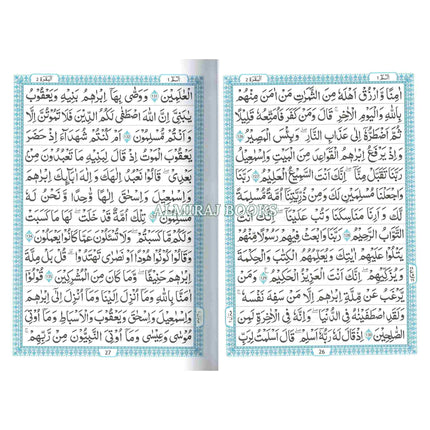 البقرة ٢ الم ١
اٰمِنًا وَّارْزُقْ اَهْلَهٗ مِنَ الثَّمَرٰتِ مَنْ اٰمَنَ مِنْهُمْ
بِاللّٰهِ وَالْيَوْمِ الْاٰخِرِ ؕ قَالَ وَمَنْ كَفَرَ فَاُمَتِّعُهٗ قَلِيْلًا
ثُمَّ اَضْطَرُّهٗۤ اِلٰى عَذَابِ النَّارِ ؕ وَبِئْسَ الْمَصِيْرُ
وَاِذْ يَرْفَعُ اِبْرٰهٖمُ الْقَوَاعِدَ مِنَ الْبَيْتِ وَاِسْمٰعِيْلُ ؕ
رَبَّنَا تَقَبَّلْ مِنَّا ؕ اِنَّكَ اَنْتَ السَّمِيْعُ الْعَلِيْمُ رَبَّنَا
وَاجْعَلْنَا مُسْلِمَيْنِ لَكَ وَمِنْ ذُرِّيَّتِنَاۤ اُمَّةً مُّسْلِمَةً
لَّكَ ۪ وَاَرِنَا مَنَاسِكَنَا وَتُبْ عَلَيْنَا ۚ اِنَّكَ اَنْتَ
التَّوَّابُ الرَّحِيْمُ رَبَّنَا وَابْعَثْ فِيْهِمْ رَسُوْلًا مِّنْهُمْ
يَتْلُوْا عَلَيْهِمْ اٰيٰتِكَ وَيُعَلِّمُهُمُ الْكِتٰبَ وَالْحِكْمَةَ
وَيُزَكِّيْهِمْ ؕ اِنَّكَ اَنْتَ الْعَزِيْزُ الْحَكِيْمُ وَمَنْ
يَّرْغَبُ عَنْ مِّلَّةِ اِبْرٰهٖمَ اِلَّا مَنْ سَفِهَ نَفْسَهٗ ؕ
وَلَقَدِ اصْطَفَيْنٰهُ فِى الدُّنْيَا ۚ وَاِنَّهٗ فِى الْاٰخِرَةِ لَمِنَ
الصّٰلِحِيْنَ اِذْ قَالَ لَهٗ رَبُّهٗۤ اَسْلِمْ ۙ قَالَ اَسْلَمْتُ لِرَبِّ
26
البقرة ٢ الم ١
الْعٰلَمِيْنَ وَوَصّٰى بِهَاۤ اِبْرٰهٖمُ بَنِيْهِ وَيَعْقُوْبُ ؕ
يٰبَنِىَّ اِنَّ اللّٰهَ اصْطَفٰى لَكُمُ الدِّيْنَ فَلَا تَمُوْتُنَّ اِلَّا
وَاَنْتُمْ مُّسْلِمُوْنَ اَمْ كُنْتُمْ شُهَدَآءَ اِذْ حَضَرَ
يَعْقُوْبَ الْمَوْتُ ۙ اِذْ قَالَ لِبَنِيْهِ مَا تَعْبُدُوْنَ مِنْ
بَعْدِىْ ؕ قَالُوْا نَعْبُدُ اِلٰهَكَ وَاِلٰهَ اٰبَآئِكَ اِبْرٰهٖمَ
وَاِسْمٰعِيْلَ وَاِسْحٰقَ اِلٰهًا وَّاحِدًا ۖ وَّنَحْنُ لَهٗ
مُسْلِمُوْنَ تِلْكَ اُمَّةٌ قَدْ خَلَتْ ۚ لَهَا مَا كَسَبَتْ
وَلَكُمْ مَّا كَسَبْتُمْ ۚ وَلَا تُسْـَٔلُوْنَ عَمَّا كَانُوْا يَعْمَلُوْنَ
وَقَالُوْا كُوْنُوْا هُوْدًا اَوْ نَصٰرٰى تَهْتَدُوْا ؕ قُلْ بَلْ مِلَّةَ
اِبْرٰهٖمَ حَنِيْفًا ؕ وَمَا كَانَ مِنَ الْمُشْرِكِيْنَ قُوْلُوْۤا
اٰمَنَّا بِاللّٰهِ وَمَاۤ اُنْزِلَ اِلَيْنَا وَمَاۤ اُنْزِلَ اِلٰٓى اِبْرٰهٖمَ
وَاِسْمٰعِيْلَ وَاِسْحٰقَ وَيَعْقُوْبَ وَالْاَسْبَاطِ وَمَاۤ اُوْتِىَ
مُوْسٰى وَعِيْسٰى وَمَاۤ اُوْتِىَ النَّبِيُّوْنَ مِنْ رَّبِّهِمْ ۚ
27
ALMIRAJ BOOKS